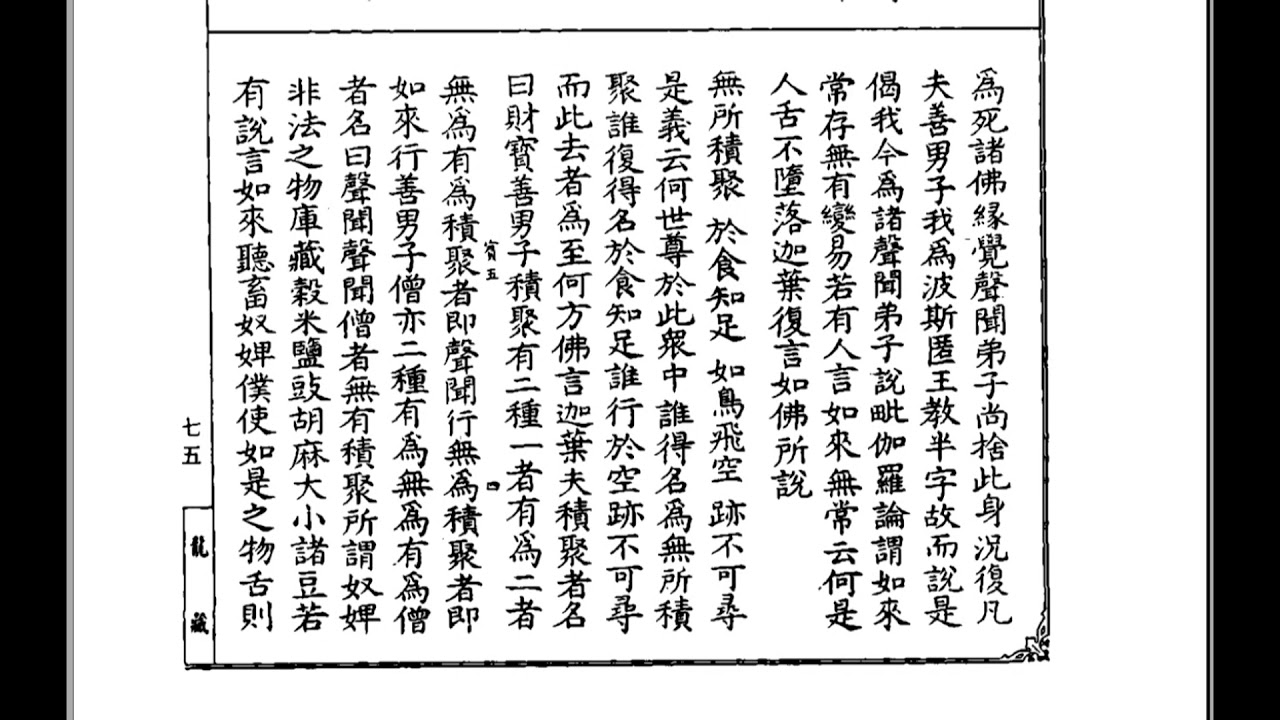 為死諸佛緣覺聲聞弟子尚捨此身況復凡
夫善男子我為波斯匿王教半字故而說是
偈我今為諸聲聞弟子說毗伽羅論謂如來
常存無有變易若有人言如來無常云何是
人舌不墮落迦葉復言如佛所說
無所積聚 於食知足 如鳥飛空 跡不可尋
是義云何世尊於此衆中誰得名為無所積
聚誰復得名於食知足誰行於空跡不可尋
而此去者為至何方佛言迦葉夫積聚者名
曰財寶善男子積聚有二種一者有為二者
賓五 四
無為有為積聚者即聲聞行無為積聚者即
如來行善男子僧亦二種有為無為有為僧
者名曰聲聞聲聞僧者無有積聚所謂奴婢
非法之物庫藏穀米鹽豉胡麻大小諸豆若
有說言如來聽畜奴婢僕使如是之物舌則
七五
龍藏